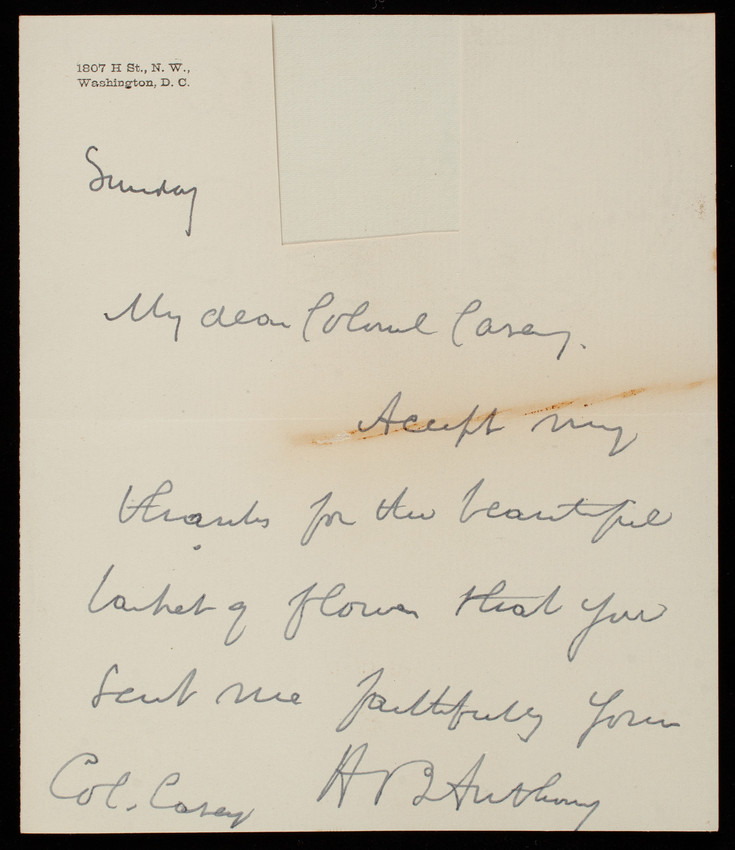 1807 H St., N. W.,
Washington, D. C.
Sunday
My dear Colonel Casey.
Accept my
thanks for the beautiful
basket of flowers that you
sent me faithfully yours
Col. Casey H B Anthony